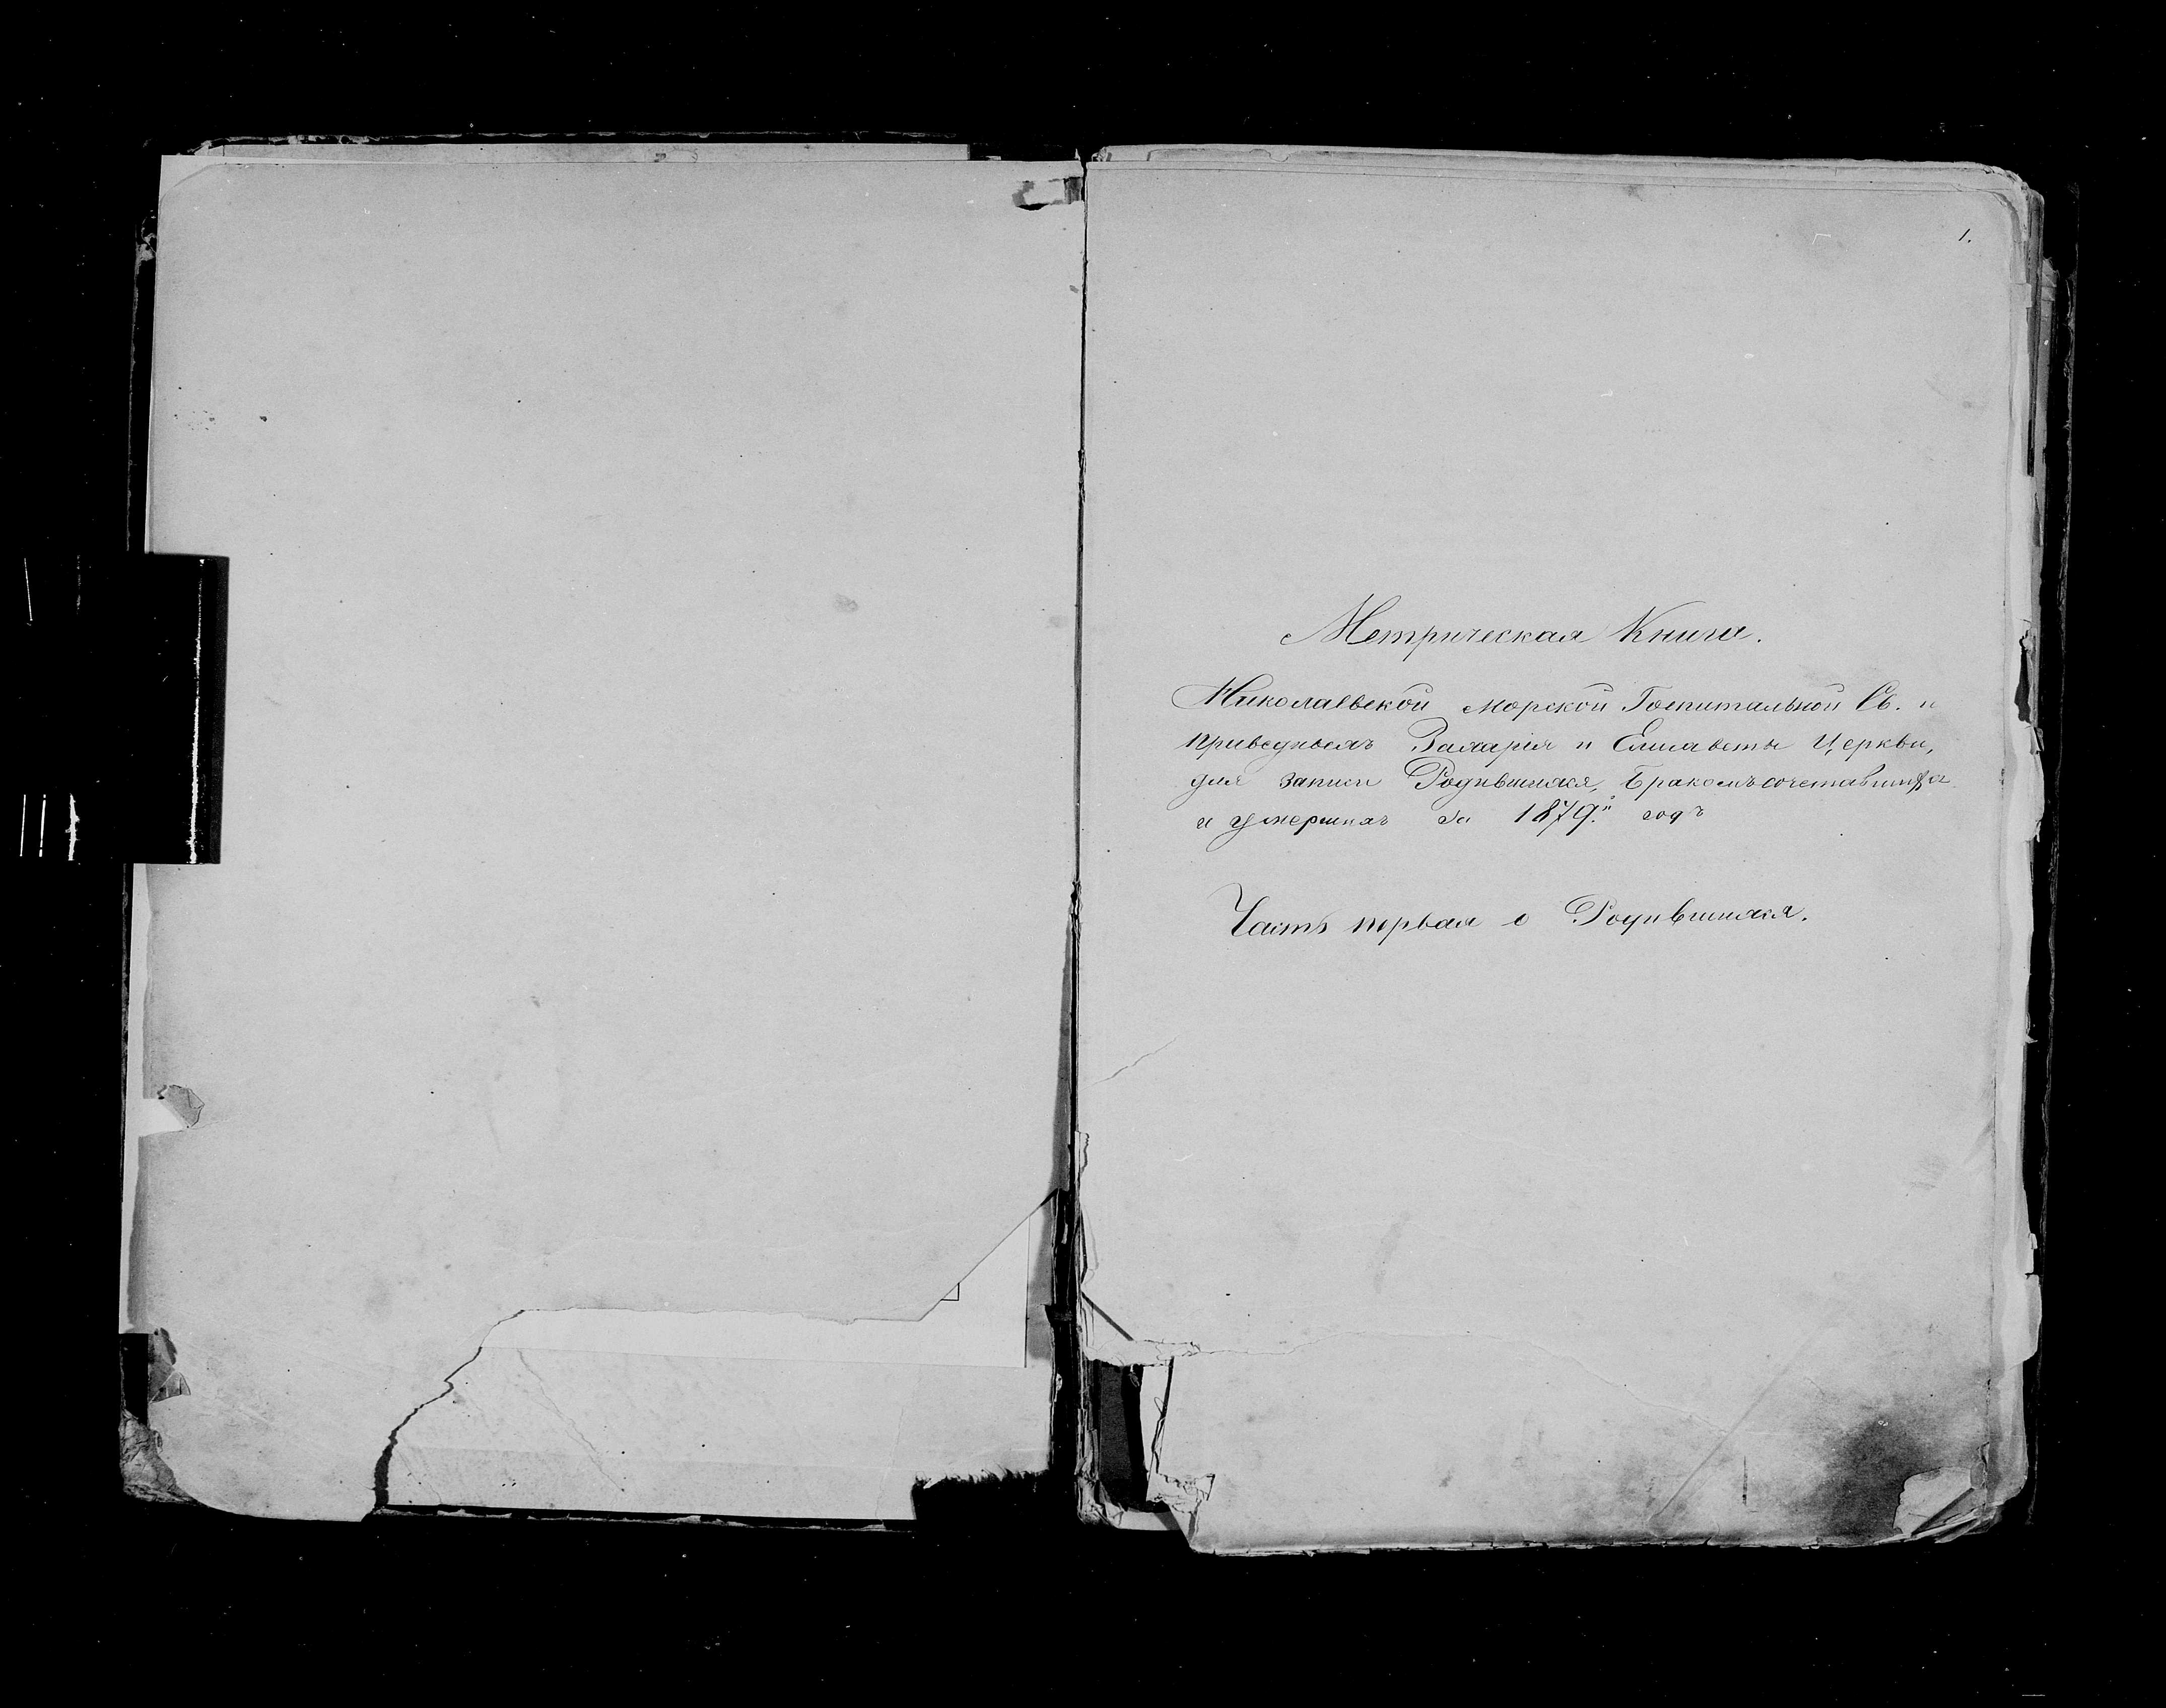 1.
Метрическая Книга.
Николаевской морской Госпитальной Св. и
праведныхъ Захарія и Елисаветы Церкви,
для записи Родившихся, бракомъ сочетавшихся
и умершихъ за 1879.й годъ
Часть первая о Родившихся.